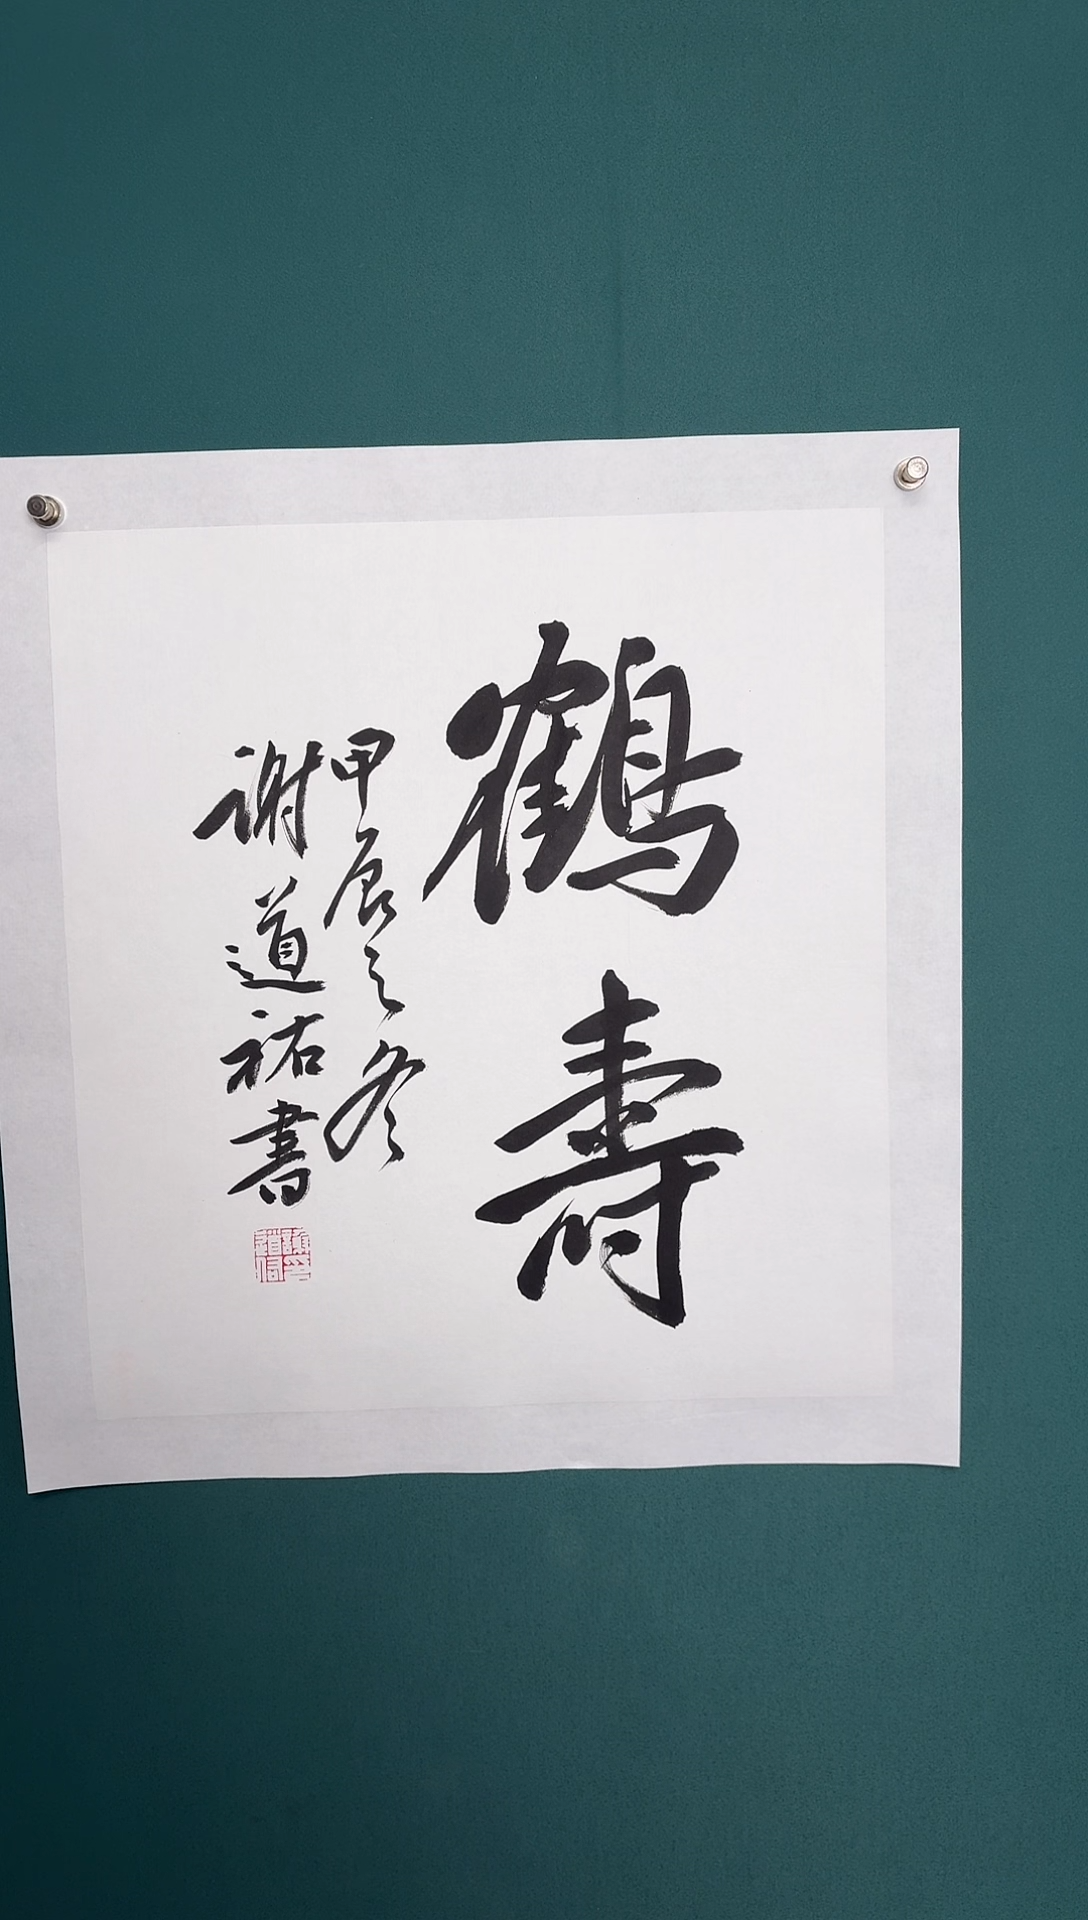 鶴壽
甲辰之冬
謝道祐書